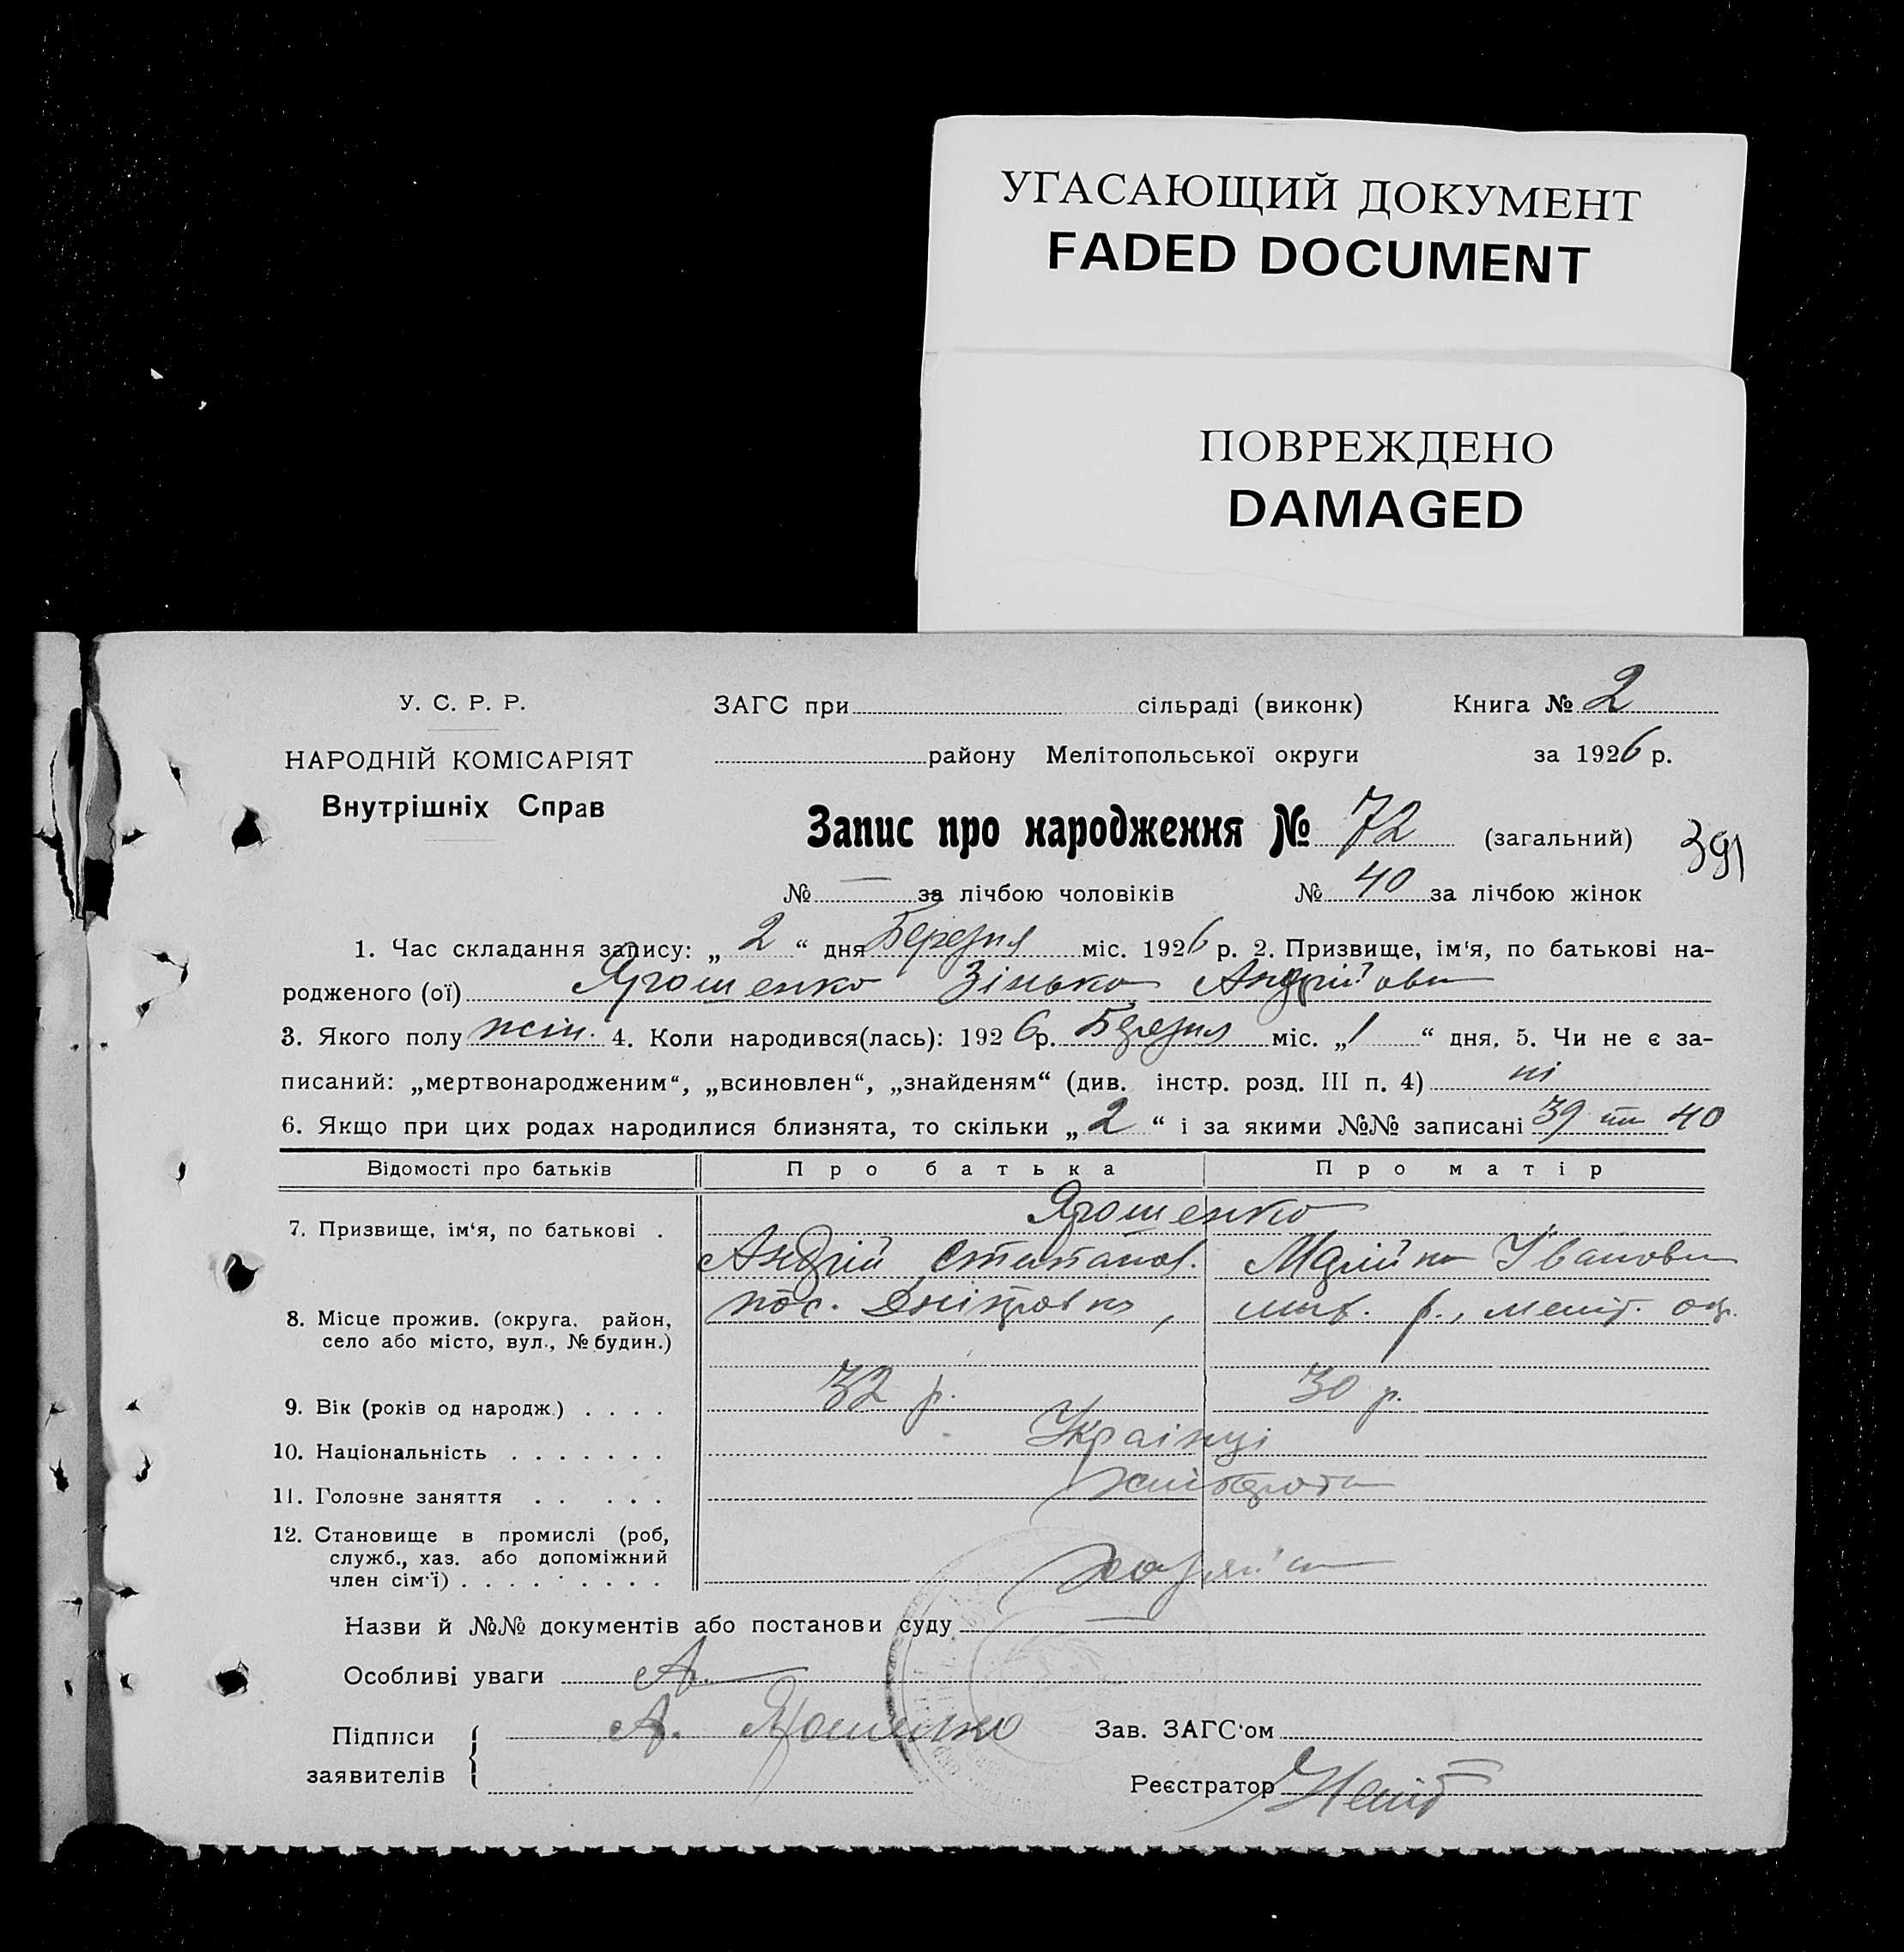 УГАСАЮЩИЙ ДОКУМЕНТ
FADED DOCUMENT
ПОВРЕЖДЕНО
DAMAGED
У. С. Р. Р.
НАРОДНІЙ КОМІСАРІЯТ
Внутрішніх Справ
ЗАГС при сільраді (виконк) Книга № 2
району Мелітопольської округи за 1926 р.
Запис про народження № 72 (загальний)
391
№ — за лічбою чоловіків № 40 за лічбою жінок
1. Час складання запису: „ 2 “ дня Березня міс. 1926 р. 2. Призвище, ім‘я, по батькові на-
родженого (ої) Ярошенко Зінька Андрійовн
3. Якого полу жін. 4. Коли народився(лась): 1926 р. Березня міс. „ 1 “ дня. 5. Чи не є за-
писаний: „мертвонародженим“, „всиновлен“, „знайденям“ (див. інстр. розд. III п. 4) ні
6. Якщо при цих родах народилися близнята, то скільки „ 2 “ і за якими №№ записані 39 та 40
Відомості про батьків Про батька Про матір
7. Призвище, ім‘я, по батькові . Ярошенко
Андрій Степанов. Марійка Івановн
8. Місце прожив. (округа, район,
село або місто, вул., № будин.)
пос. Дніпровка, р., меліт. окр.
9. Вік (років од народж.) . . . . 32 р. 30 р.
10. Національність . . . . . . . Українці
11. Головне заняття . . . . . хлібороби
12. Становище в промислі (роб,
служб., хаз. або допоміжний
член сім‘ї) . . . . . . . . .
Назви й №№ документів або постанови суду —
Особливі уваги А.
Підписи
заявителів
А. Ярошенко
Зав. ЗАГС‘ом
Реєстратор